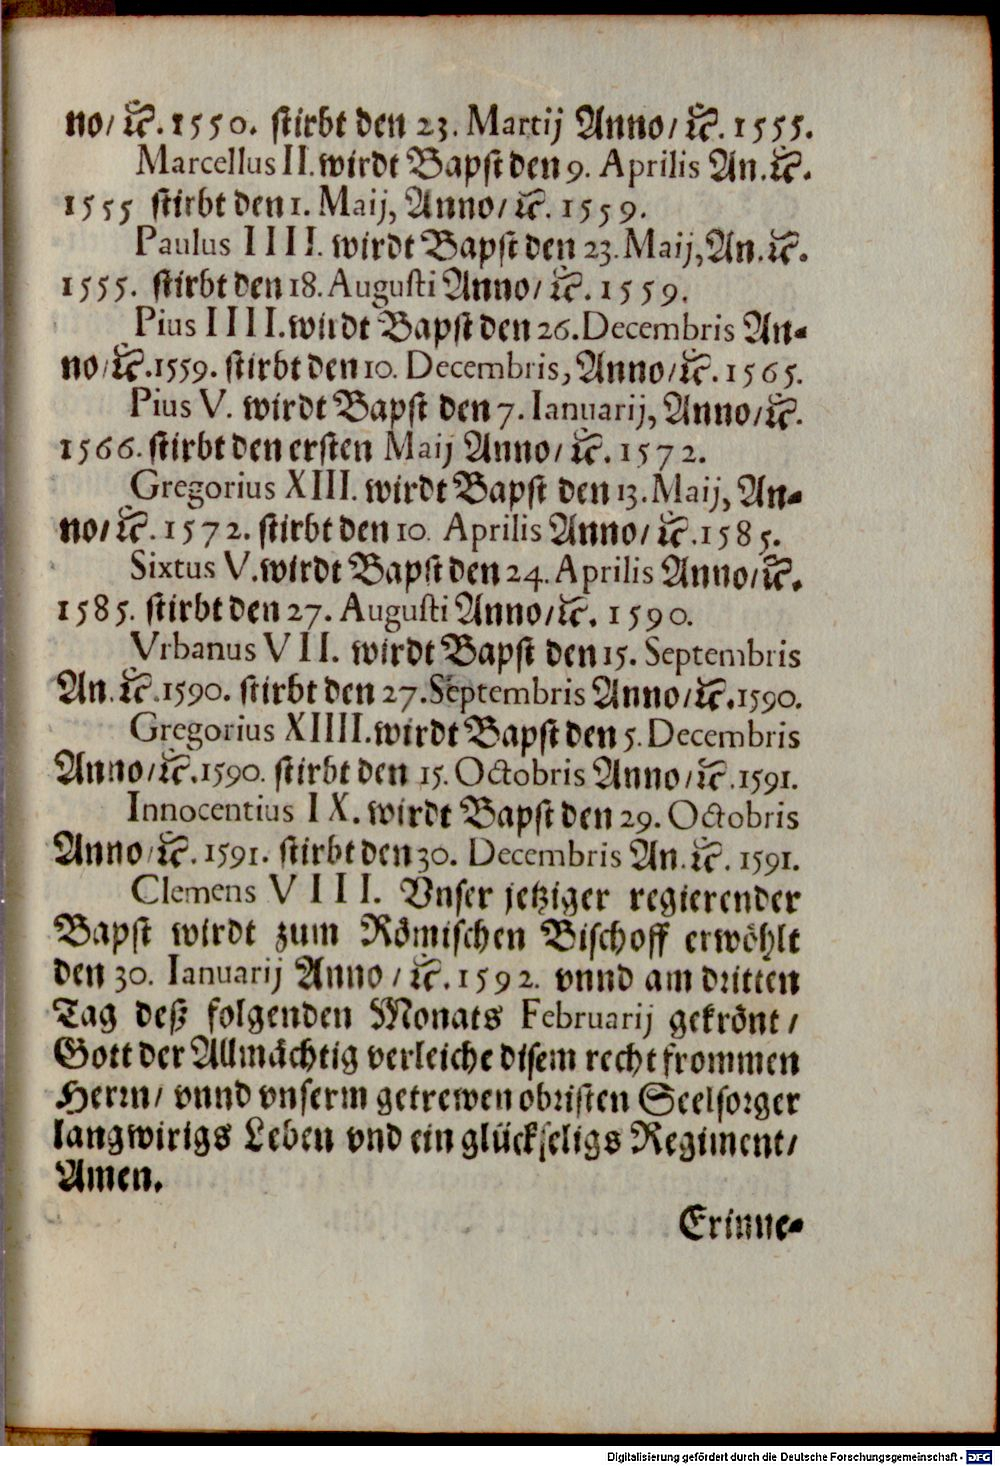 no/ ꝛc. 1550. stirbt den 23. Martij Anno/ ꝛc. 1555.
Marcellus II. wirdt Bapst den 9. Aprilis An. ꝛc.
1555 stirbt den 1. Maij, Anno/ ꝛc. 1559.
Paulus IIII. wirdt Bapst den 23. Maij, An. ꝛc.
1555. stirbt den 18. Augusti Anno/ ꝛc. 1559.
Pius IIII. wirdt Bapst den 26. Decembris An-
no/ ꝛc. 1559. stirbt den 10. Decembris, Anno/ ꝛc. 1565.
Pius V. wirdt Bapst den 7. Ianuarij, Anno/ ꝛc.
1566. stirbt den ersten Maij Anno/ ꝛc. 1572.
Gregorius XIII. wirdt Bapst den 13. Maij, An-
no/ ꝛc. 1572. stirbt den 10. Aprilis Anno/ ꝛc. 1585.
Sixtus V. wirdt Bapst den 24. Aprilis Anno/ ꝛc.
1585. stirbt den 27. Augusti Anno/ ꝛc. 1590.
Vrbanus VII. wirdt Bapst den 15. Septembris
An. ꝛc. 1590. stirbt den 27. Septembris Anno/ ꝛc. 1590.
Gregorius XIIII. wirdt Bapst den 5. Decembris
Anno/ ꝛc. 1590. stirbt den 15. Octobris Anno/ ꝛc. 1591.
Innocentius IX. wirdt Bapst den 29. Octobris
Anno/ ꝛc. 1591. stirbt den 30. Decembris An. ꝛc. 1591.
Clemens VIII. Vnser jetziger regierender
Bapst wirdt zum Römischen Bischoff erwöhlt
den 30. Ianuarij Anno/ ꝛc. 1592. vnnd am dritten
Tag deß folgenden Monats Februarij gekrönt/
Gott der Allmächtig verleiche disem recht frommen
Herrn/ vnnd vnserm getrewen obristen Seelsorger
langwirigs Leben vnd ein glückseligs Regiment/
Amen.
Erinne-
Digitalisierung gefördert durch die Deutsche Forschungsgemeinschaft - DFG